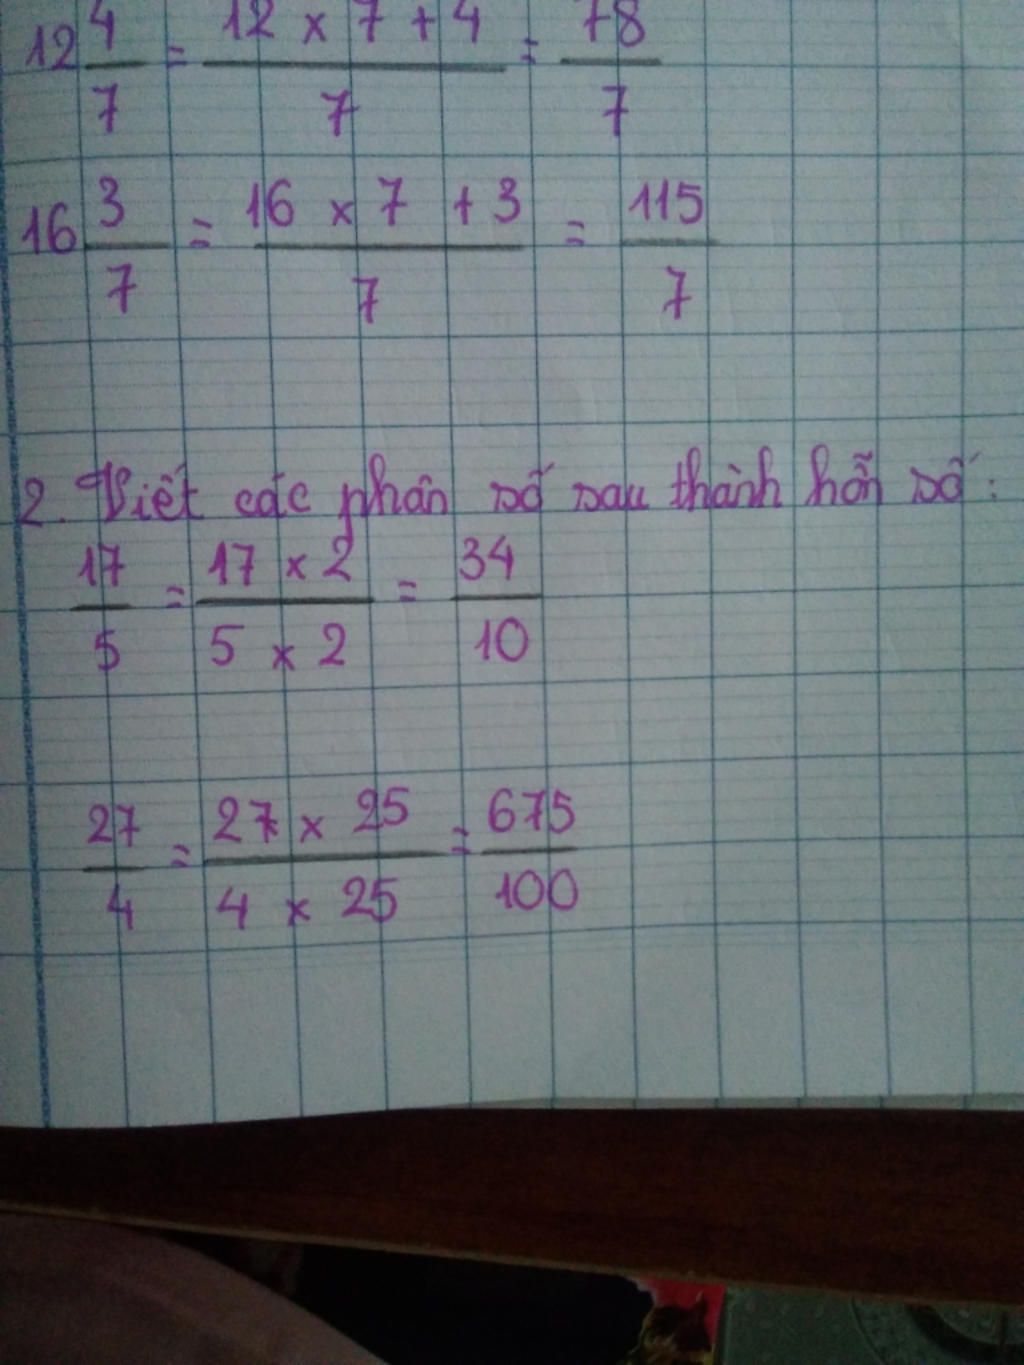 12 4/7 = (12 × 7 + 4)/7 = 78/7
16 3/7 = (16 × 7 + 3)/7 = 115/7
2. Viết các phân số sau thành hỗn số:
17/5 = (17 × 2)/(5 × 2) = 34/10
27/4 = (27 × 25)/(4 × 25) = 675/100